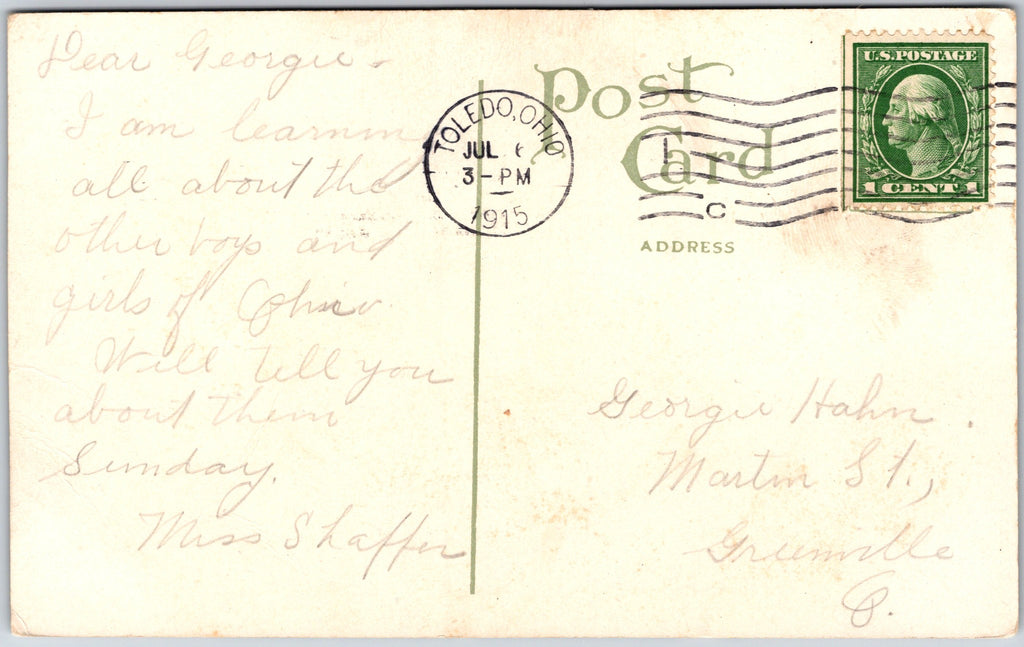 Dear Georgie -
I am learning
all about the
other boys and
girls of Ohio
Will tell you
about them
Sunday.
Miss Shaffer
Post
Card
TOLEDO, OHIO
JUL 6
3-PM
1915
L
C
U.S.POSTAGE
1 CENT 1
ADDRESS
Georgie Hahn
Martin St.,
Greenville
O.